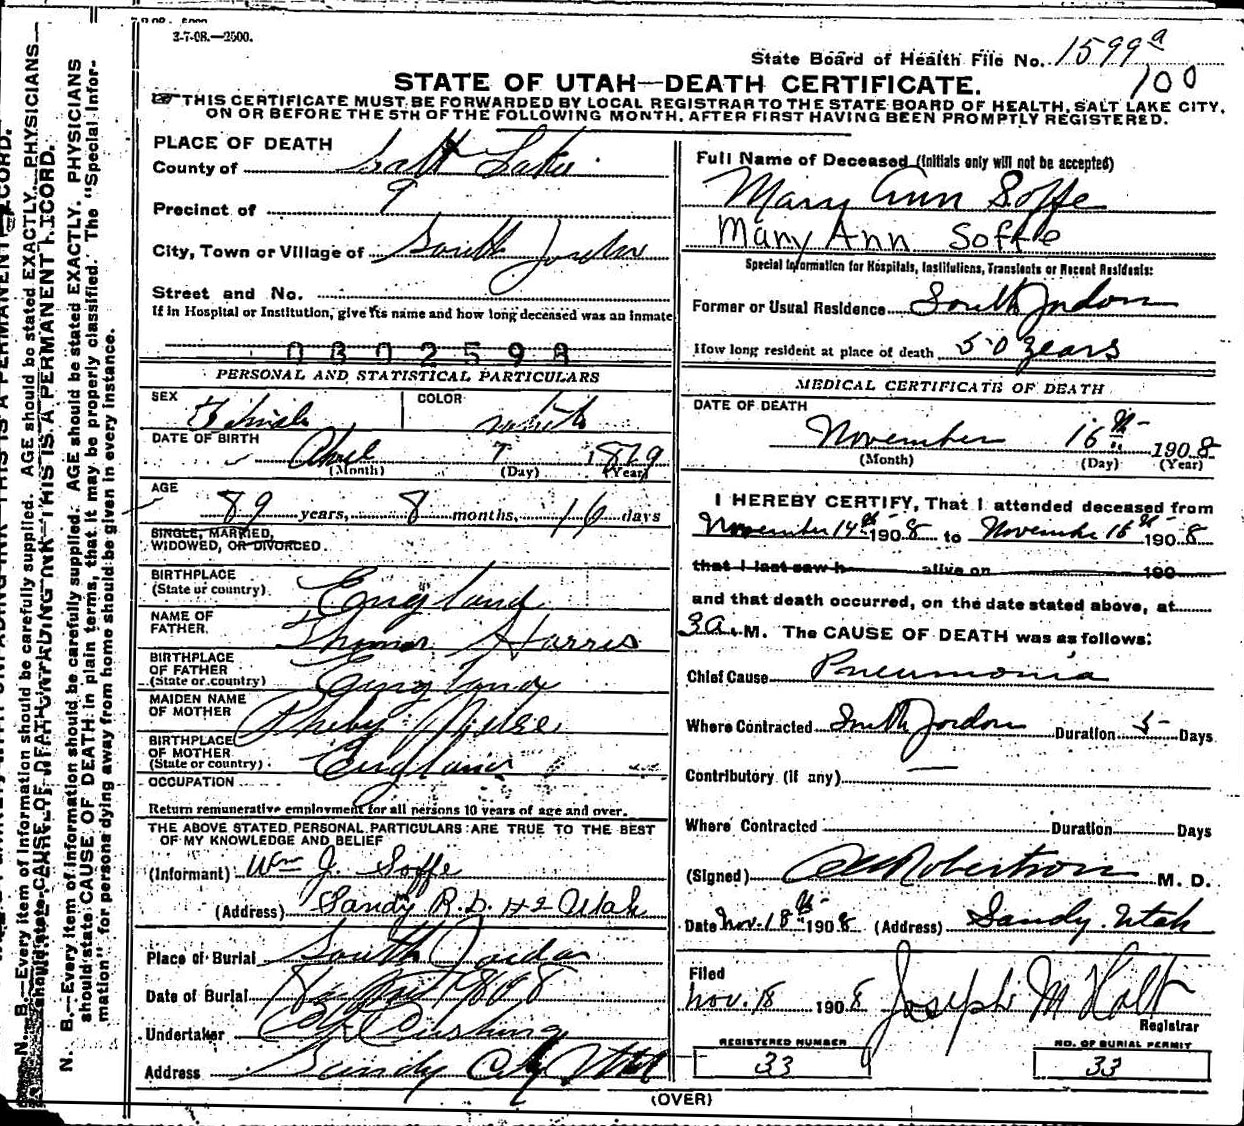 3-7-08.—2500.
State Board of Health File No. 1599a
100
STATE OF UTAH—DEATH CERTIFICATE.
THIS CERTIFICATE MUST BE FORWARDED BY LOCAL REGISTRAR TO THE STATE BOARD OF HEALTH, SALT LAKE CITY,
ON OR BEFORE THE 5TH OF THE FOLLOWING MONTH, AFTER FIRST HAVING BEEN PROMPTLY REGISTERED.
PLACE OF DEATH
County of Salt Lake
Precinct of 9
City, Town or Village of South Jordan
Street and No.
If in Hospital or Institution, give its name and how long deceased was an inmate
0302598
PERSONAL AND STATISTICAL PARTICULARS
SEX Female COLOR white
DATE OF BIRTH
April 7 1819
(Month) (Day) (Year)
AGE
89 years, 8 months, 16 days
SINGLE, MARRIED,
WIDOWED, OR DIVORCED.
BIRTHPLACE
(State or country) England
NAME OF
FATHER. Thomas Harris
BIRTHPLACE
OF FATHER
(State or country) England
MAIDEN NAME
OF MOTHER Pheby
BIRTHPLACE
OF MOTHER
(State or country) England
OCCUPATION
Return remunerative employment for all persons 10 years of age and over.
THE ABOVE STATED PERSONAL PARTICULARS ARE TRUE TO THE BEST
OF MY KNOWLEDGE AND BELIEF
(Informant) Wm J. Soffe
(Address) Sandy R.D. #2 Utah
Place of Burial South Jordan
Date of Burial
Undertaker Cushing
Address Sandy City Utah
Full Name of Deceased (Initials only will not be accepted)
Mary Ann Soffe
Mary Ann Soffe
Special Information for Hospitals, Institutions, Transients or Recent Residents:
Former or Usual Residence South Jordon
How long resident at place of death 50 years
MEDICAL CERTIFICATE OF DEATH
DATE OF DEATH
November 16th 1908
(Month) (Day) (Year)
I HEREBY CERTIFY, That I attended deceased from
November 14th 1908 to November 16th 1908
that I last saw h alive on 190
and that death occurred, on the date stated above, at
3 a. M. The CAUSE OF DEATH was as follows:
Chief Cause Pneumonia
Where Contracted South Jordon Duration 5 Days
Contributory (if any)
Where Contracted Duration Days
(Signed) Robertson M. D.
Date Nov. 18th 1908 (Address) Sandy Utah
Filed
Nov. 18 1908 Joseph M Holt
Registrar
REGISTERED NUMBER
33
NO. OF BURIAL PERMIT
33
(OVER)
N. B.—Every item of information should be carefully supplied. AGE should be stated EXACTLY. PHYSICIANS
should state CAUSE OF DEATH in plain terms, that it may be properly classified. The "Special Infor-
mation" for persons dying away from home should be given in every instance.